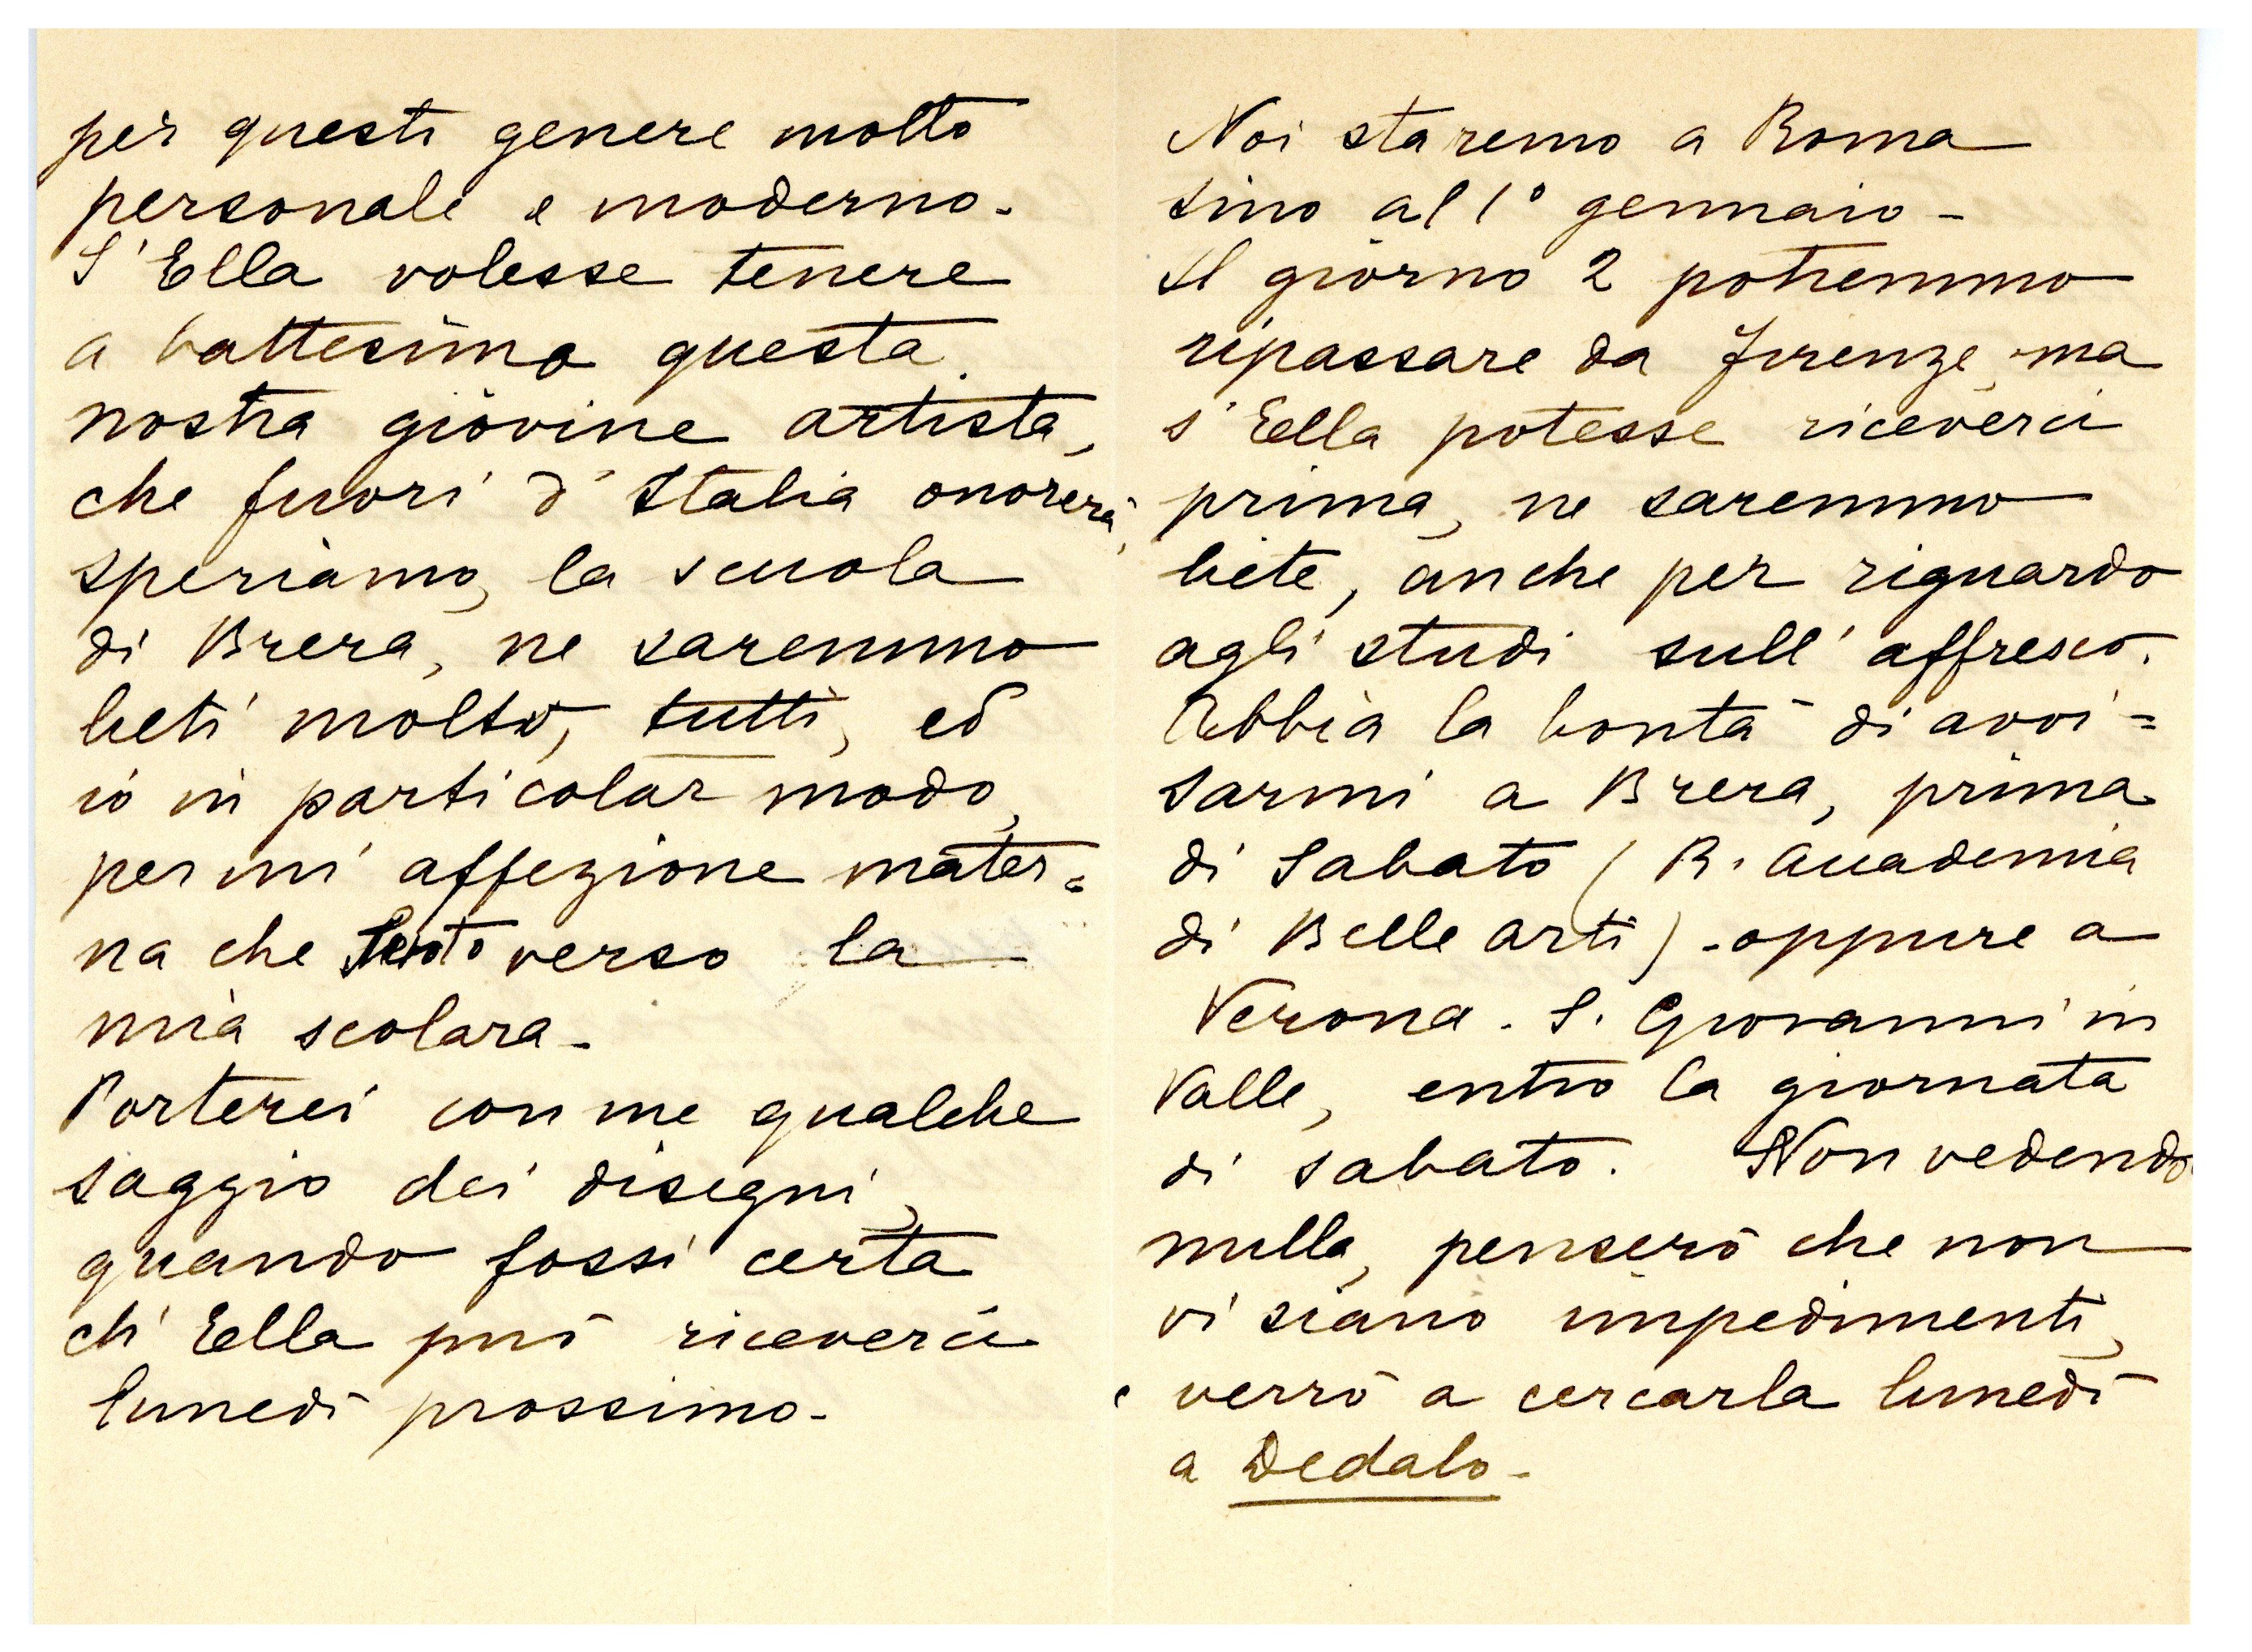 per questi genere molto
personale e moderno.
S'Ella volesse tenere
a battesimo questa
nostra giovine artista,
che fuori d'Italia onorerà,
speriamo, la scuola
di Brera, ne saremmo
lieti molto, tutti, ed
io in particolar modo,
per mi affezione mater=
na che sento verso la
mia scolara -
Porterei con me qualche
saggio dei disegni,
quando fossi certa
ch'Ella può riceverci
lunedì prossimo -
Noi staremo a Roma
sino al 1° gennaio -
Il giorno 2 potremmo
ripassare da Firenze, ma
s'Ella potesse riceverci
prima, ne saremmo
liete, anche per riguardo
agli studi sull'affresco.
Abbia la bontà di avvi=
sarmi a Brera, prima
di Sabato (R. Accademia
di Belle arti) - oppure a
Verona. S. Giovanni in
Valle, entro la giornata
di sabato. Non vedendo
nulla, penserò che non
vi siano impedimenti,
e verrò a cercarla lunedì
a Dedalo -